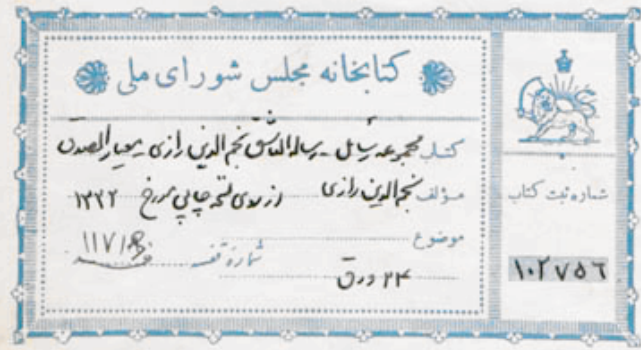 کتابخانه مجلس شورای ملی
کتاب مجموعه رسائل - رساله العاشق نجم الدین رازی معیار الصدق
مؤلف نجم الدین رازی از روی نسخه چاپی مورخ ۱۳۲۲
موضوع
شماره قفسه
۲۴ ورق
شماره ثبت کتاب
۱۰۲۷۵۶